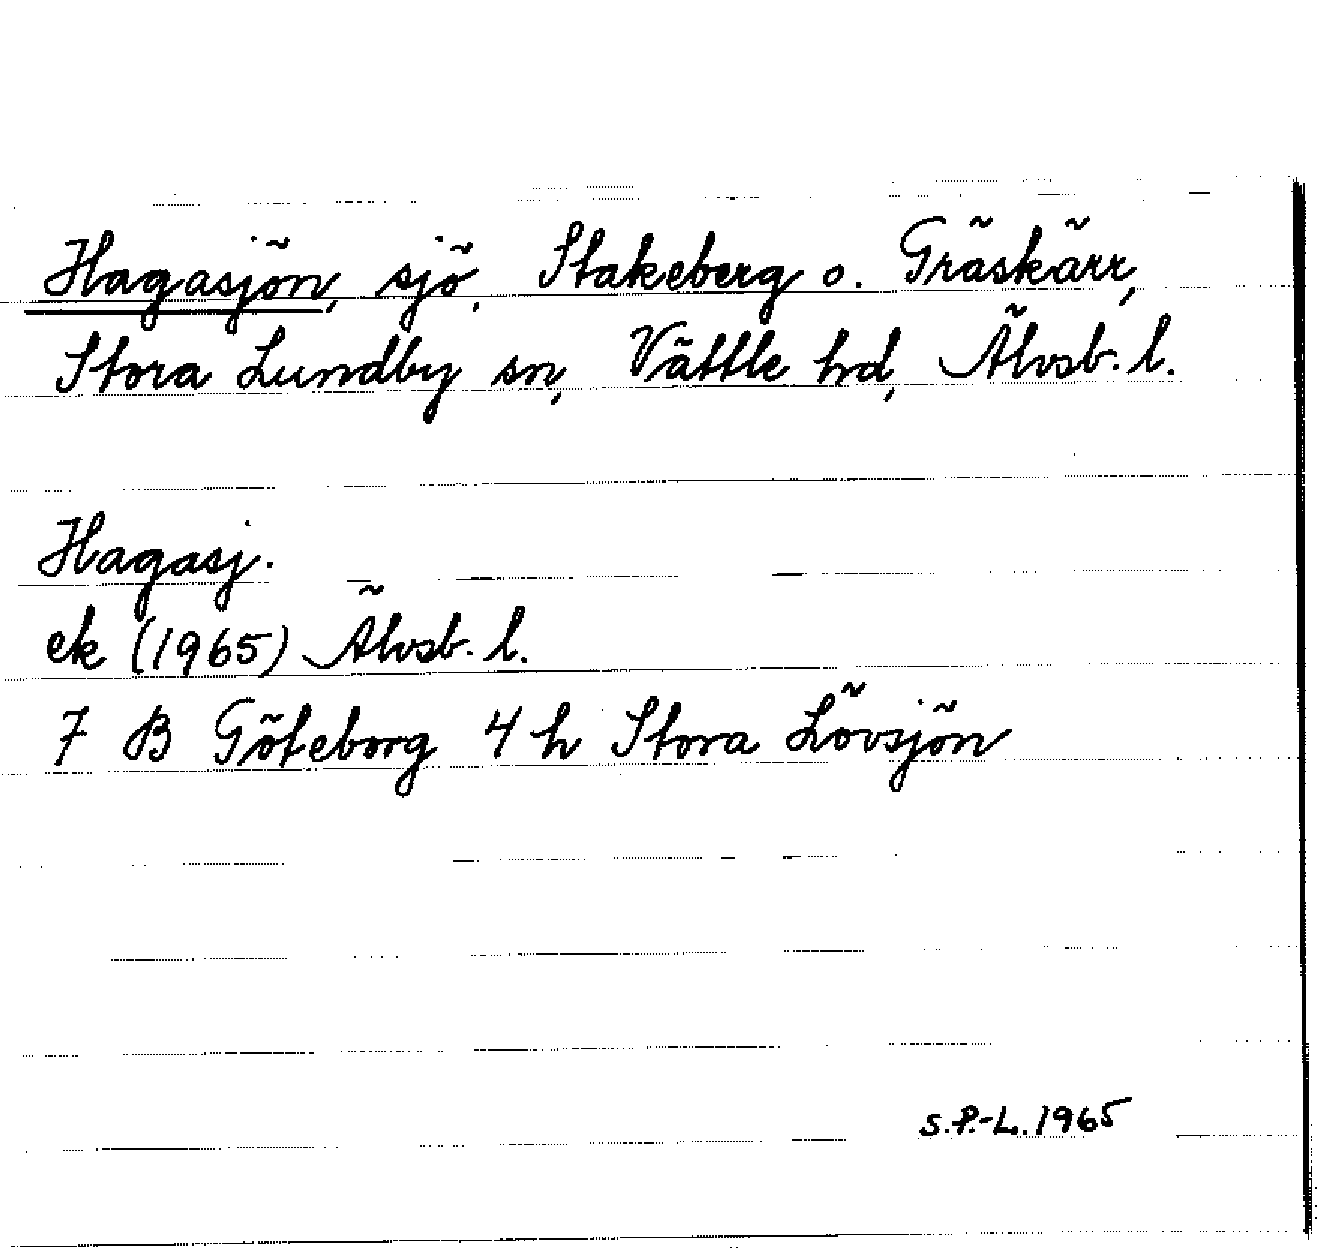 Hagasjön, sjö, Stakeberg o. Gräskärr,
Stora Lundby sn, Vättle hd, Älvsb. l.
Hagasj.
ek (1965) Älvsb. l.
7 B Göteborg 4 h Stora Lövsjön
S.P.-L. 1965